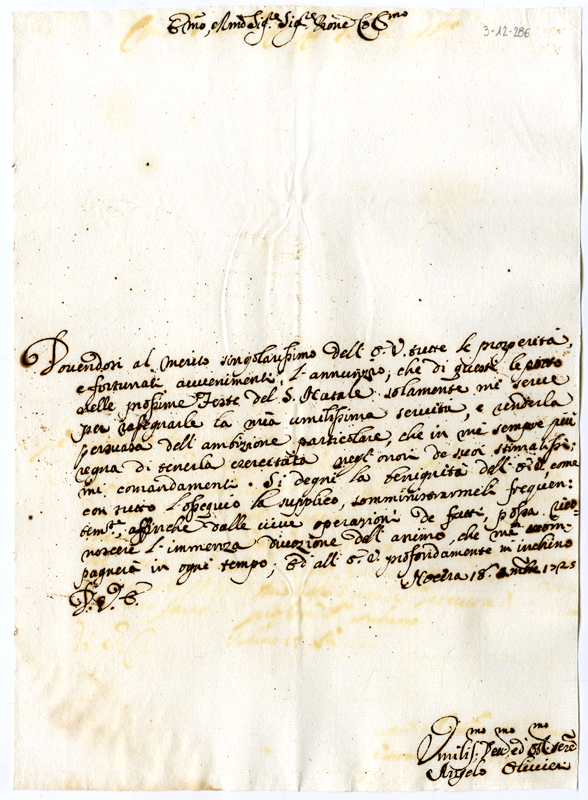 3-12-286
Douendosi al merito singolarissimo dell' S. V. tutte le prosperità,
e fortunati auuenimenti, l'annunzio, che di queste le porto
nelle prossime Feste del S. Natale solamente mi serue
per rasegnarle la mia umilissima seruitù, e renderla
persuasa dell'ambizione particolare, che in me sempre più
regna di tenerla esercitata negl'onori de suoi stimatissi:
mi comandamenti. Si degni la benignità dell' S. V. come
con tutto l'ossequio la supplico, somministrarmeli frequen:
temte, affinche dalle uiue operazioni de fatti, possa rico=
noscere l'immenza diuozione dell'animo, che m'accom
pagnerà in ogni tempo; Ed all' S. V. profondamente m'inchino
Nocera 18 1725
D. V. S.
Umilis. ed
Angelo Oliuieri